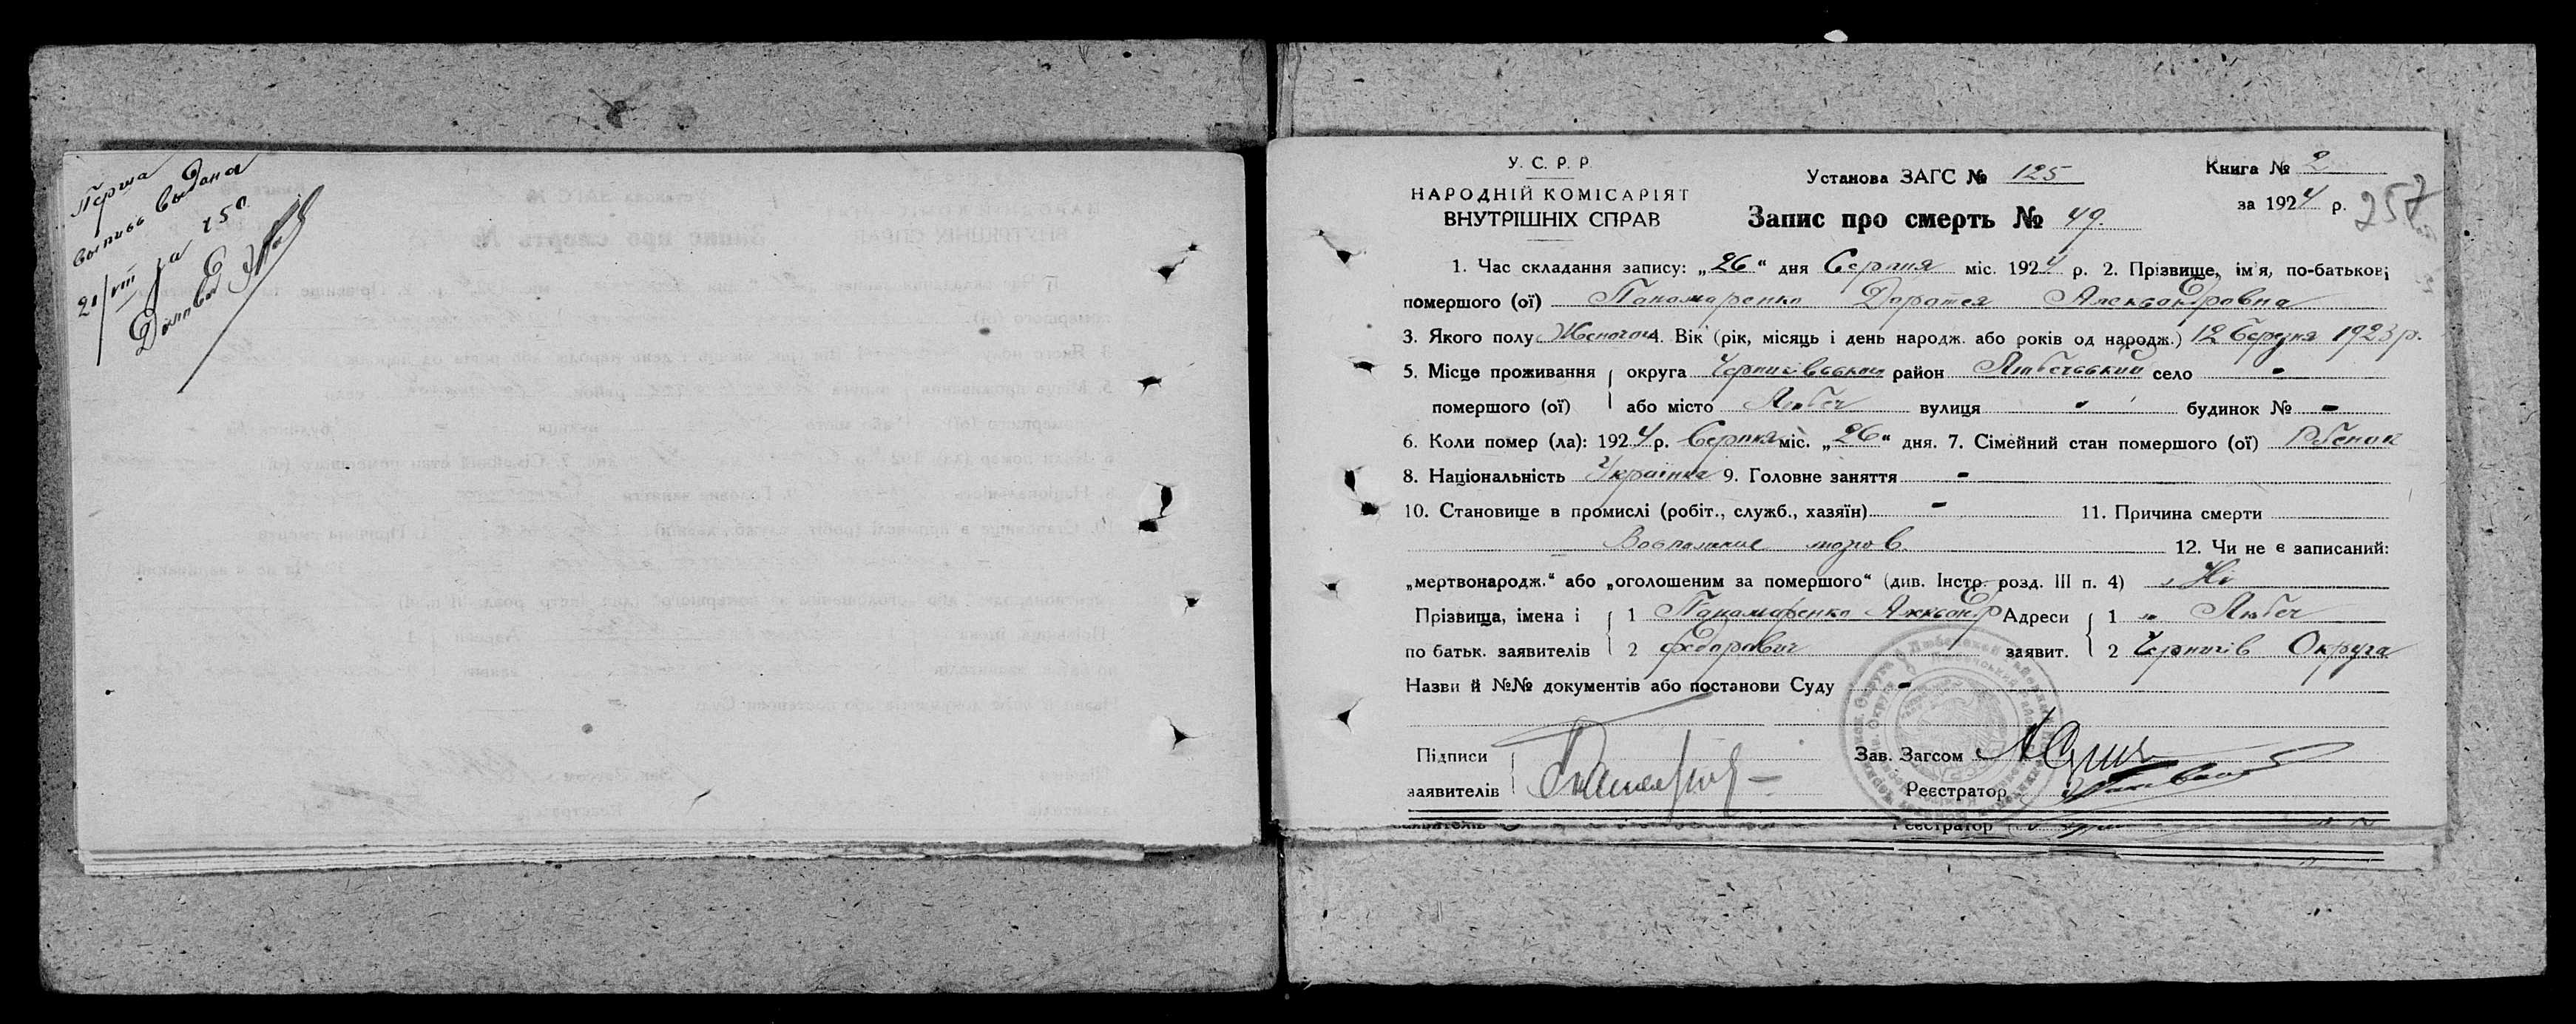 Перша
выпись выдана
21/VIII за 250
У. С. Р. Р.
НАРОДНІЙ КОМІСАРІЯТ
ВНУТРІШНІХ СПРАВ
Установа ЗАГС № 125
Запис про смерть № 49.
Книга № 2
за 1924 р.
257
1. Час складання запису: „26“ дня Серпня міс. 1924 р. 2. Прізвище, ім'я, по-батькові
помершого (ої) Панамаренко Даротея Александровна
3. Якого полу Женочои 4. Вік (рік, місяць і день народж. або років од народж.) 12 березня 1923 р.
5. Місце проживання округа Чернигівськои район Любечський село -
помершого (ої) або місто Любеч вулиця - будинок № -
6. Коли помер (ла): 1924 р. Серпня міс. „26“ дня. 7. Сімейний стан помершого (ої) Рбенок
8. Національність Українка 9. Головне заняття -
10. Становище в промислі (робіт., служб., хазяїн) - 11. Причина смерти
Воспаление 12. Чи не є записаний:
„мертвонародж.“ або „оголошеним за помершого“ (див. Інстр. розд. III п. 4) Ні
Прізвища, імена і 1 Панамаренко Александр Адреси 1 м Любеч
по батьк. заявителів 2 Федорович заявит. 2 Чернигів Округа
Назви й №№ документів або постанови Суду -
Підписи Зав. Загсом
заявителів Реєстратор
заявителів Реєстратор